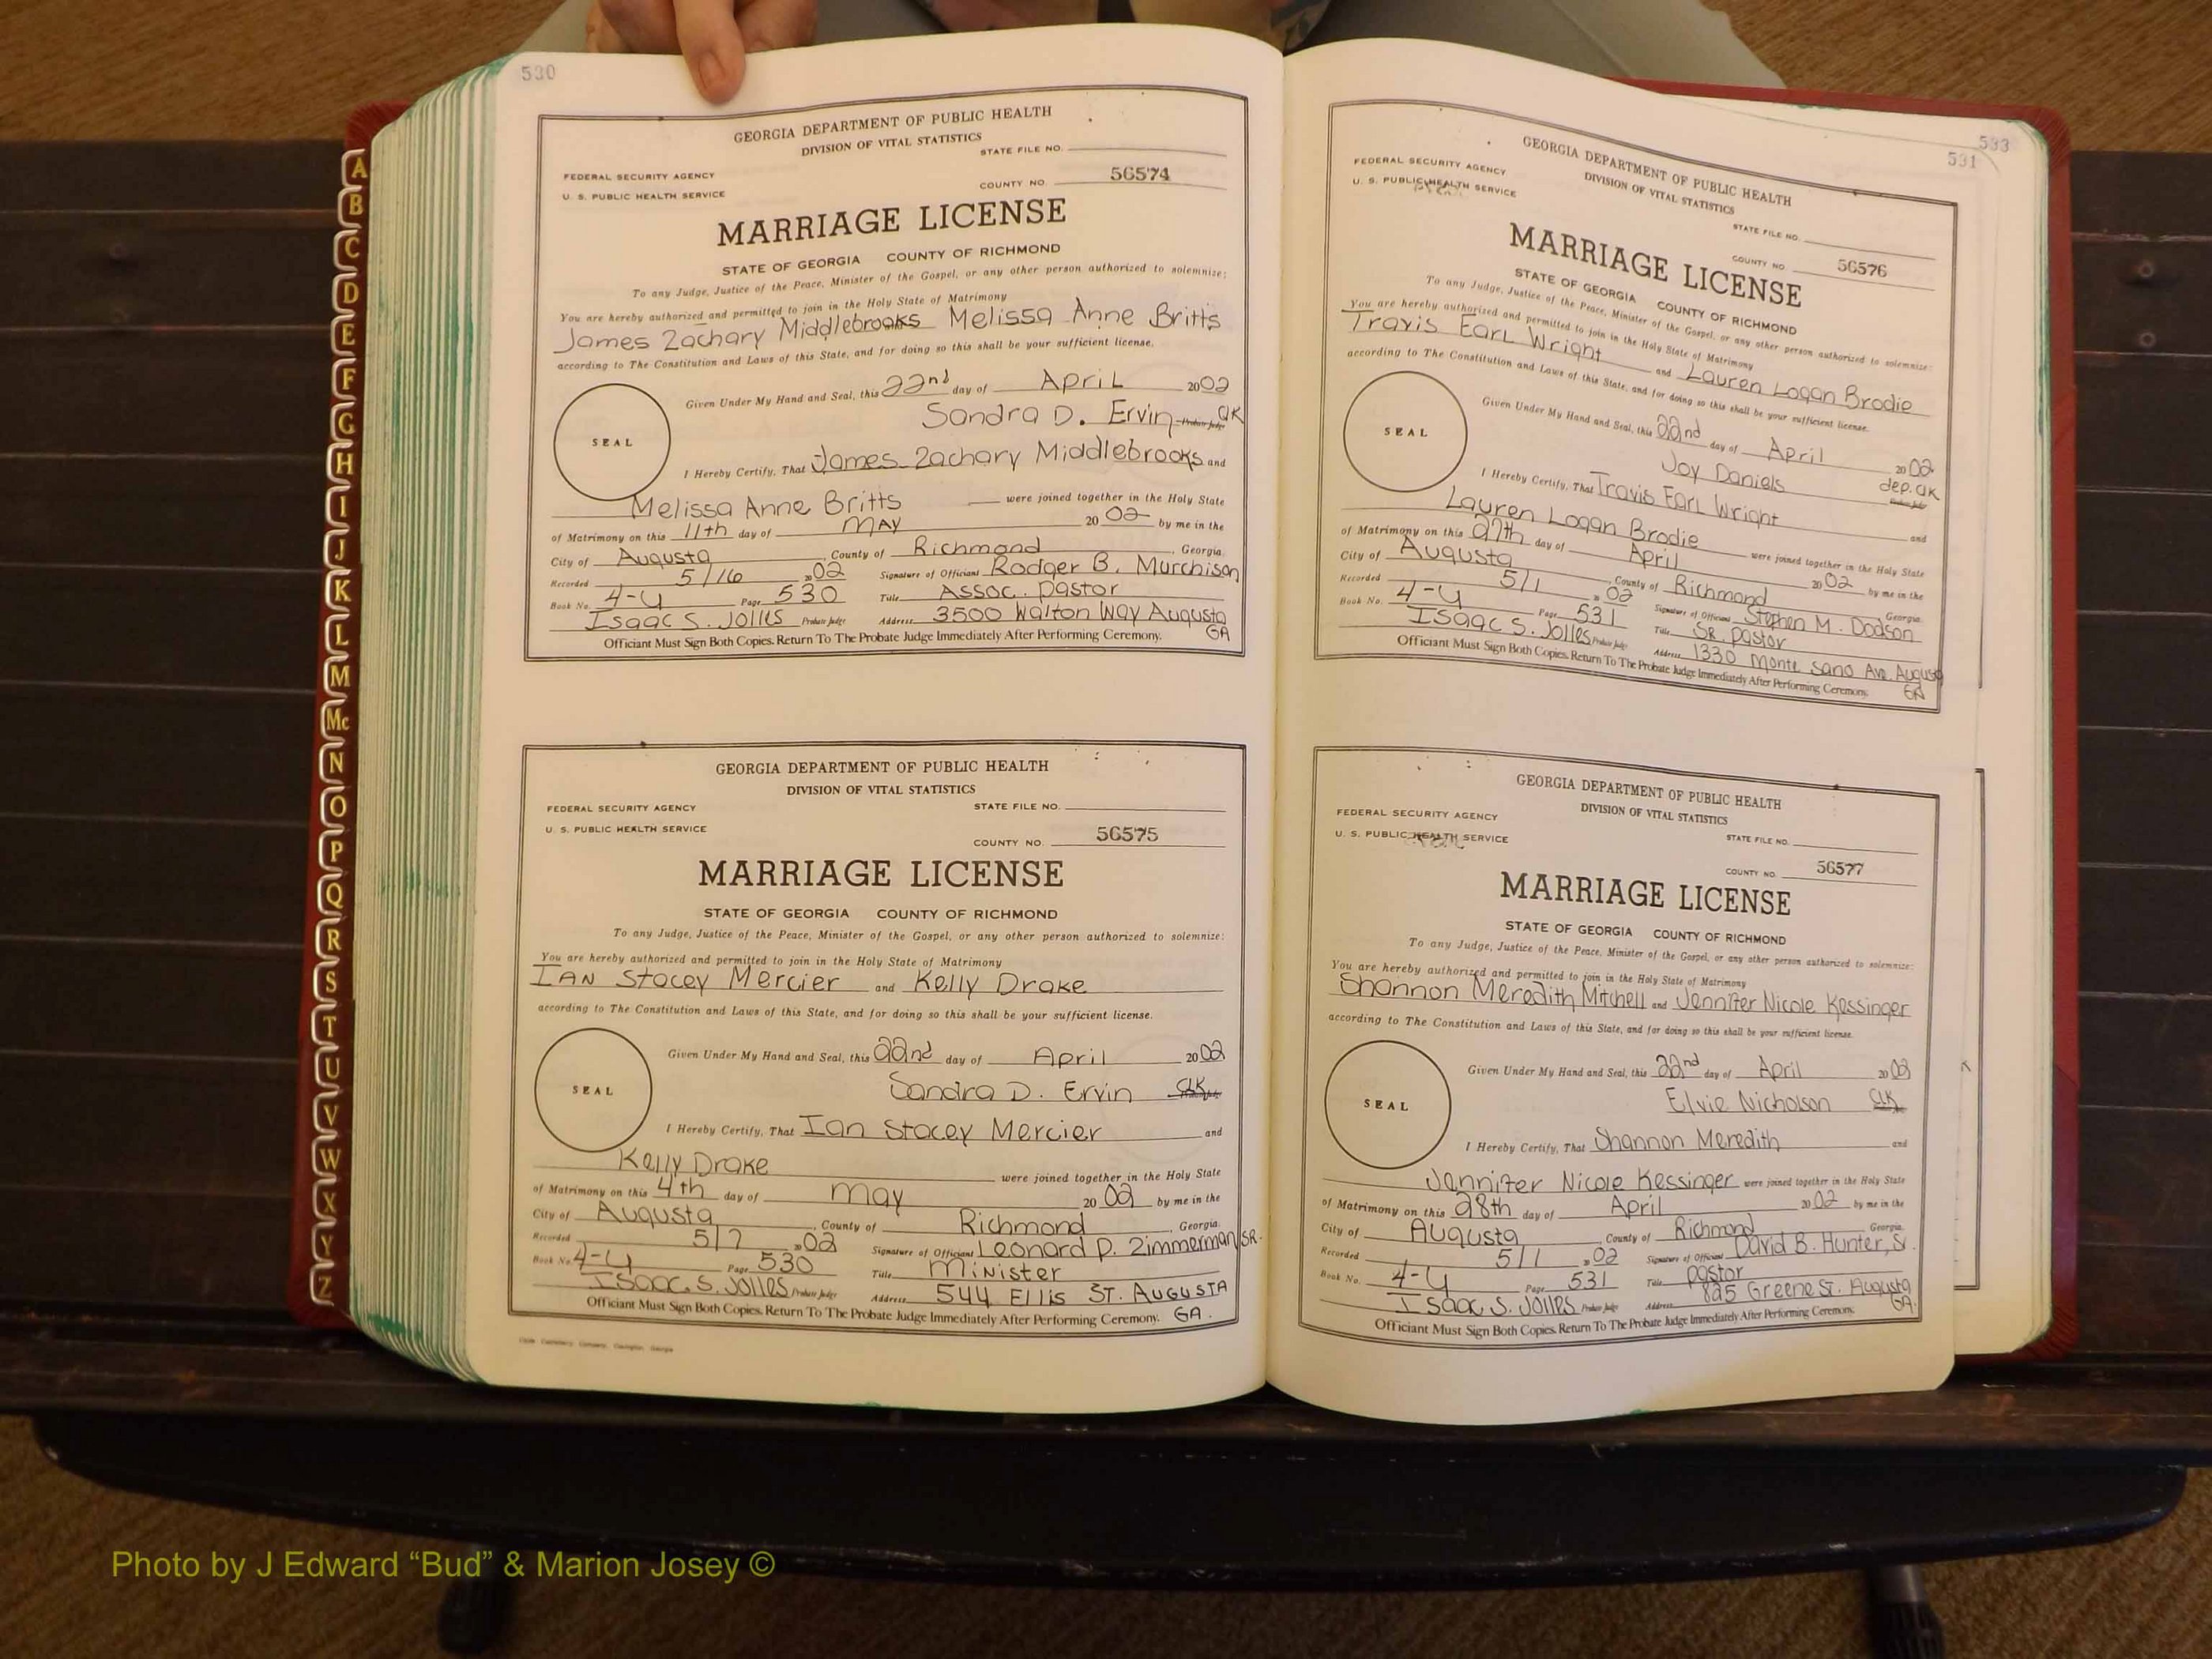 530
GEORGIA DEPARTMENT OF PUBLIC HEALTH
DIVISION OF VITAL STATISTICS
STATE FILE NO.
FEDERAL SECURITY AGENCY
U. S. PUBLIC HEALTH SERVICE
COUNTY NO. 56574
MARRIAGE LICENSE
STATE OF GEORGIA COUNTY OF RICHMOND
To any Judge, Justice of the Peace, Minister of the Gospel, or any other person authorized to solemnize:
You are hereby authorized and permitted to join in the Holy State of Matrimony
James Zachary Middlebrooks Melissa Anne Britts
according to The Constitution and Laws of this State, and for doing so this shall be your sufficient license.
Given Under My Hand and Seal, this 22nd day of April 2002
Sandra D. Ervin Probate Judge Clk
SEAL
I Hereby Certify, That James Zachary Middlebrooks and
Melissa Anne Britts were joined together in the Holy State
of Matrimony on this 11th day of MAY 2002 by me in the
City of Augusta, County of Richmond, Georgia.
Recorded 5/16 2002 Signature of Officiant Rodger B. Murchison
Book No. 4-U Page 530 Title Assoc. Pastor
Isaac S. Jolles Probate Judge Address 3500 Walton Way Augusta
GA
Officiant Must Sign Both Copies. Return To The Probate Judge Immediately After Performing Ceremony.
GEORGIA DEPARTMENT OF PUBLIC HEALTH
DIVISION OF VITAL STATISTICS
FEDERAL SECURITY AGENCY STATE FILE NO.
U. S. PUBLIC HEALTH SERVICE
COUNTY NO. 56575
MARRIAGE LICENSE
STATE OF GEORGIA COUNTY OF RICHMOND
To any Judge, Justice of the Peace, Minister of the Gospel, or any other person authorized to solemnize:
You are hereby authorized and permitted to join in the Holy State of Matrimony
IAN Stacey Mercier and Kelly Drake
according to The Constitution and Laws of this State, and for doing so this shall be your sufficient license.
Given Under My Hand and Seal, this 22nd day of April 2002
Sandra D. Ervin CLK Probate Judge
SEAL
I Hereby Certify, That Ian Stacey Mercier and
Kelly Drake were joined together in the Holy State
of Matrimony on this 4th day of May 2002 by me in the
City of Augusta, County of Richmond, Georgia.
Recorded 5/7 2002 Signature of Officiant Leonard P. Zimmerman, SR.
Book No. 4-U Page 530 Title Minister
Isaac S. Jolles Probate Judge Address 544 Ellis ST. AUGUSTA
Officiant Must Sign Both Copies. Return To The Probate Judge Immediately After Performing Ceremony. GA.
533
531
GEORGIA DEPARTMENT OF PUBLIC HEALTH
DIVISION OF VITAL STATISTICS
FEDERAL SECURITY AGENCY
U. S. PUBLIC HEALTH SERVICE
STATE FILE NO.
COUNTY NO. 56576
MARRIAGE LICENSE
STATE OF GEORGIA COUNTY OF RICHMOND
To any Judge, Justice of the Peace, Minister of the Gospel, or any other person authorized to solemnize:
You are hereby authorized and permitted to join in the Holy State of Matrimony
Travis Earl Wright and Lauren Logan Brodie
according to The Constitution and Laws of this State, and for doing so this shall be your sufficient license.
Given Under My Hand and Seal, this 22nd day of April 2002
Joy Daniels dep. Clk
Probate Judge
SEAL
I Hereby Certify, That Travis Earl Wright and
Lauren Logan Brodie were joined together in the Holy State
of Matrimony on this 27th day of April 2002 by me in the
City of Augusta, County of Richmond, Georgia.
Recorded 5/1 2002 Signature of Officiant Stephen M. Dodson
Book No. 4-U Page 531 Title SR. Pastor
Isaac S. Jolles Probate Judge Address 1330 Monte Sano Ave. Augusta
GA
Officiant Must Sign Both Copies. Return To The Probate Judge Immediately After Performing Ceremony.
GEORGIA DEPARTMENT OF PUBLIC HEALTH
DIVISION OF VITAL STATISTICS
FEDERAL SECURITY AGENCY
U. S. PUBLIC HEALTH SERVICE STATE FILE NO.
COUNTY NO. 56577
MARRIAGE LICENSE
STATE OF GEORGIA COUNTY OF RICHMOND
To any Judge, Justice of the Peace, Minister of the Gospel, or any other person authorized to solemnize:
You are hereby authorized and permitted to join in the Holy State of Matrimony
Shannon Meredith Mitchell and Jennifer Nicole Kessinger
according to The Constitution and Laws of this State, and for doing so this shall be your sufficient license.
Given Under My Hand and Seal, this 22nd day of April 2002
Elvie Nicholson CLK
SEAL
I Hereby Certify, That Shannon Meredith and
Jennifer Nicole Kessinger were joined together in the Holy State
of Matrimony on this 28th day of April 2002 by me in the
City of Augusta, County of Richmond, Georgia.
Recorded 5/1 2002 Signature of Officiant David B. Hunter, Sr.
Book No. 4-U Page 531 Title Pastor
Isaac S. Jolles Probate Judge Address 825 Greene St. Augusta
GA.
Officiant Must Sign Both Copies. Return To The Probate Judge Immediately After Performing Ceremony.
A
B
C
D
E
F
G
H
I
J
K
L
M
Mc
N
O
P
Q
R
S
T
U
V
W
X
Y
Z
Photo by J Edward “Bud” & Marion Josey ©